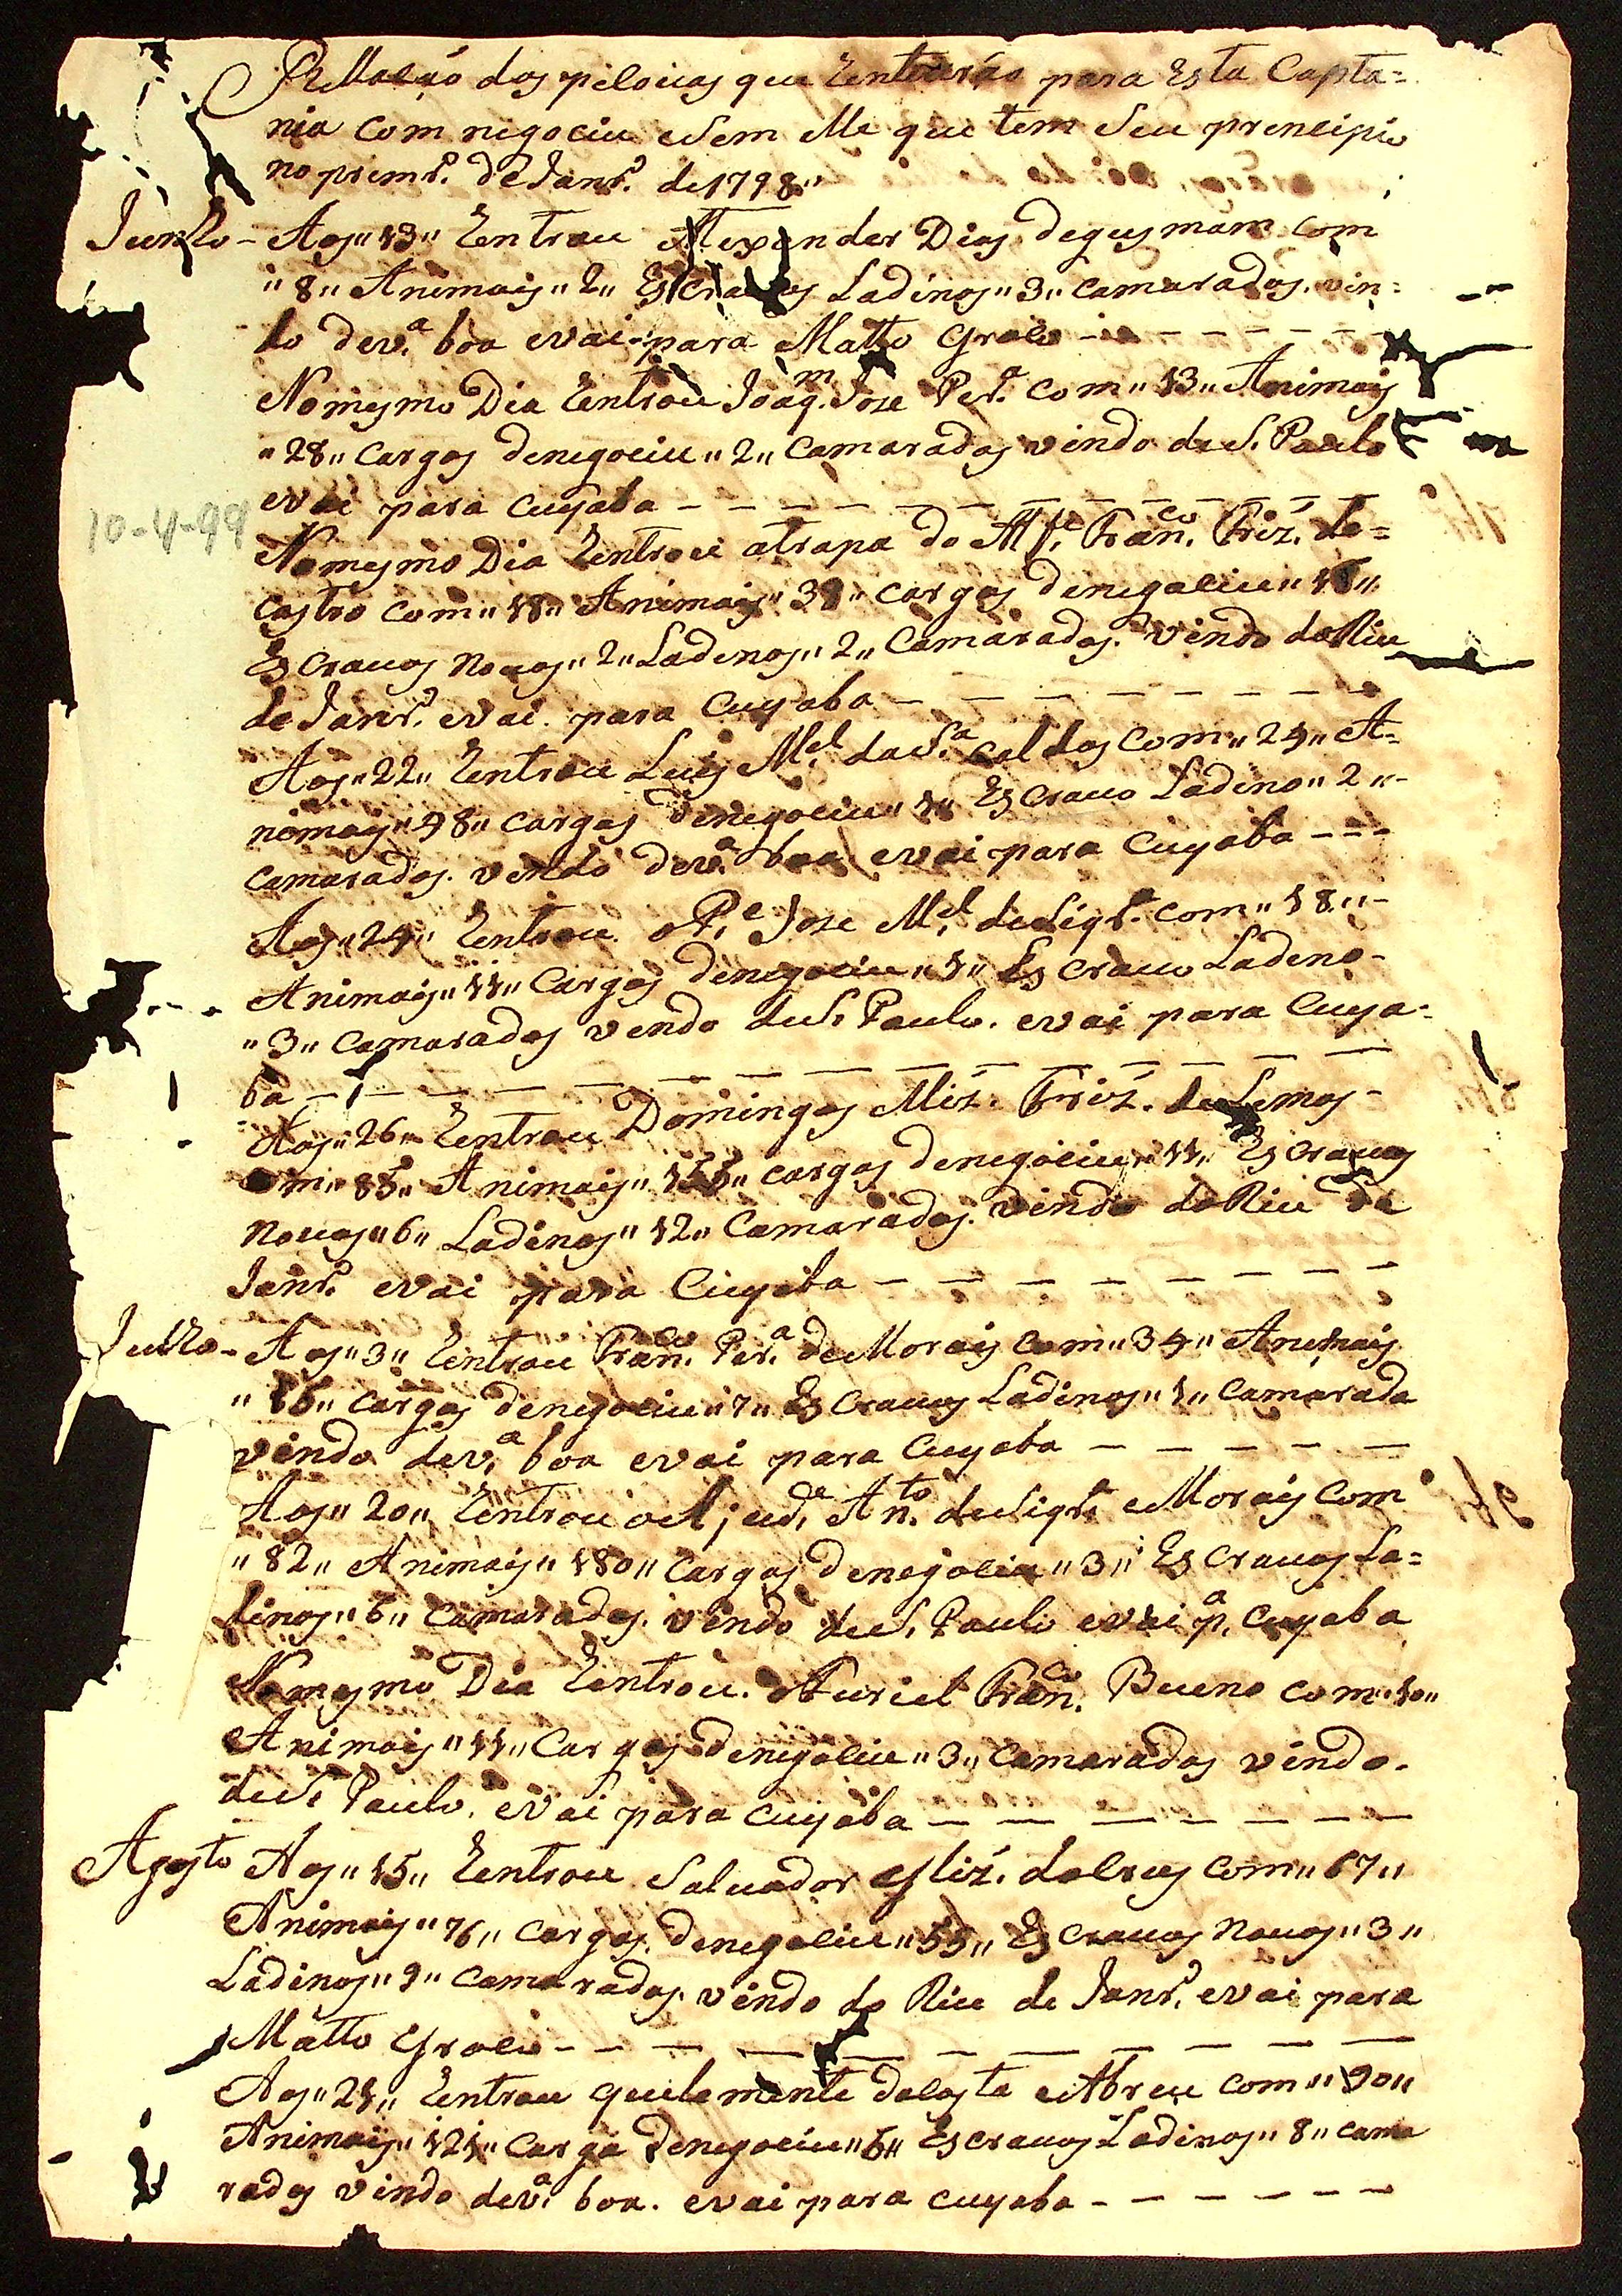 Rellasaó dos peloias que Eentrarão para Esta Capta=
nia com negociu eSem elle que tem Seu prencipio
no primr.º de Janr.º de 1798,,
Junho - Aos,,13,, Eentrou Alexander Dias degusmam com
,,8,, Animais,,2,, EsCrauos Ladinos,,3,, camaradas. vin=
do de v.ª boa evai para Matto Groso - - - - - -
Nomesmo Dia Eentrou Joaq.m Joze Per.ª com,,13,, Animais
,,28,, cargas denegociu,,2,, camaradas vindo de S. Paulo
evai para cuyaba - - - - - - - -
10-4-99
Nomesmo Dia Eentrou atropa do Alf.e Fran.co Friz. de=
castro com,,18,, Animais,,39,, cargas denegociu,,16,,
EsCrauos Nouos,,2,,Ladenos,,2,, Camaradas. vindo do Riu
de Janr.º evai para cuyaba - - - - - - -
Aos,,22,, Eentrou Luis M.el da S.ª caldas com,,24,, A=
nimais,,48,, cargas denegociu,,1,, EsCrauo Ladino,,2,,-
camaradas. vendo de v.ª boa evai para cuyaba - - -
Aos,,24,, Eentrou o P.e Joze M.el deSiqr.ª com,,18,,-
Animais,,11,, Cargas denegociu,,1,, EsCrauo Ladeno-
,,3,, camaradas vendo de S. Paulo. evai para Cuya=
ba - - - - - - - - - - -
Aos,,26,, Eentrou Domingos Miz. Friz. de Lemos-
com,,85,, Animais,,155,, cargas denegociu,,11,, EsCrauos
nouos,,6,, Ladinos,,12,, Camaradas. vindo do Riu de
Janr.º evai para Cuyaba - - - - - - -
Julho - Aos,,3,, Eentrou Fran.co Per.ª de Morais com,,34,, Anemais
,,16,, cargas denegociu,,7,, EsCrauos Ladinos,,1,, camarada
vindo de v.ª boa evai para Cuyaba - - - - -
Aos,,20,, Eentrou o Ajud.e An.to deSiqr.ª eMorais com
,,82,, Animais,,180,, Cargas denegociu,,3,, EsCrauos La=
dinos,,6,, camaradas. vindo de S. Paulo evai p.ª cuyaba
Nomesmo Dia Eentrou. o Furiel Fran.co Bueno com,,10,,
Animais,,11,, Cargas denegociu,,3,, camaradas vindo.
de S. Paulo. evai para cuyaba - - - - - - -
Agosto Aos,,15,, Eentrou Salvador Miz. dalrus com,,67,,
Animais,,76,, cargas denegociu,,55,, EsCrauos Nouos,,3,,
Ladinos,,9,, camaradas. vindo do Riu de Janr.º evai para
Matto Groso - - - - - - - - -
Aos,,21,, Eentrou guilemente dacosta eAbreu com,,90,,
Animais,,121,, Carga denegociu,,6,, Escrauos Ladinos,,8,, cama
radas vindo de v.ª boa. evai para cuyaba - - - - - -